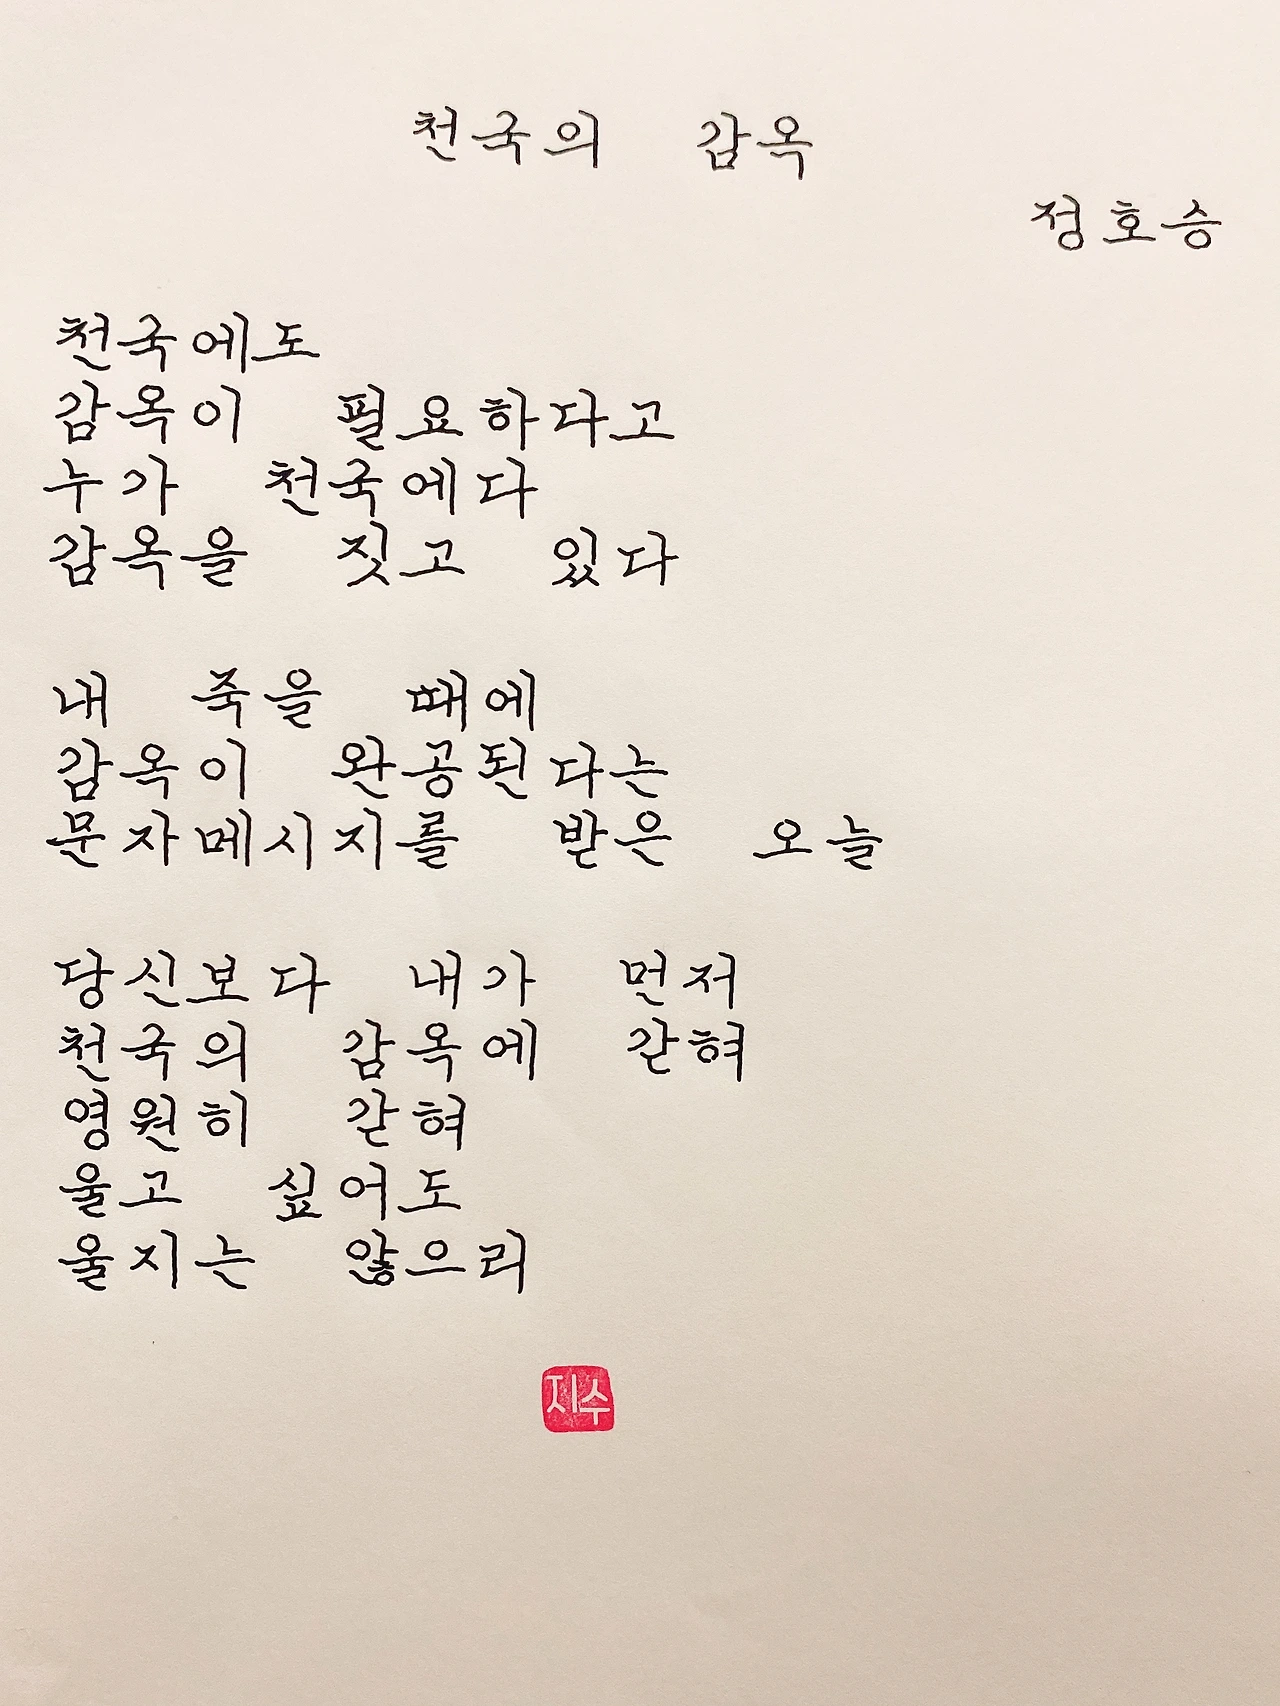 천국의 감옥
정호승
천국에도
감옥이 필요하다고
누가 천국에다
감옥을 짓고 있다
내 죽을 때에
감옥이 완공된다는
문자메시지를 받은 오늘
당신보다 내가 먼저
천국의 감옥에 갇혀
영원히 갇혀
울고 싶어도
울지는 않으리
지수